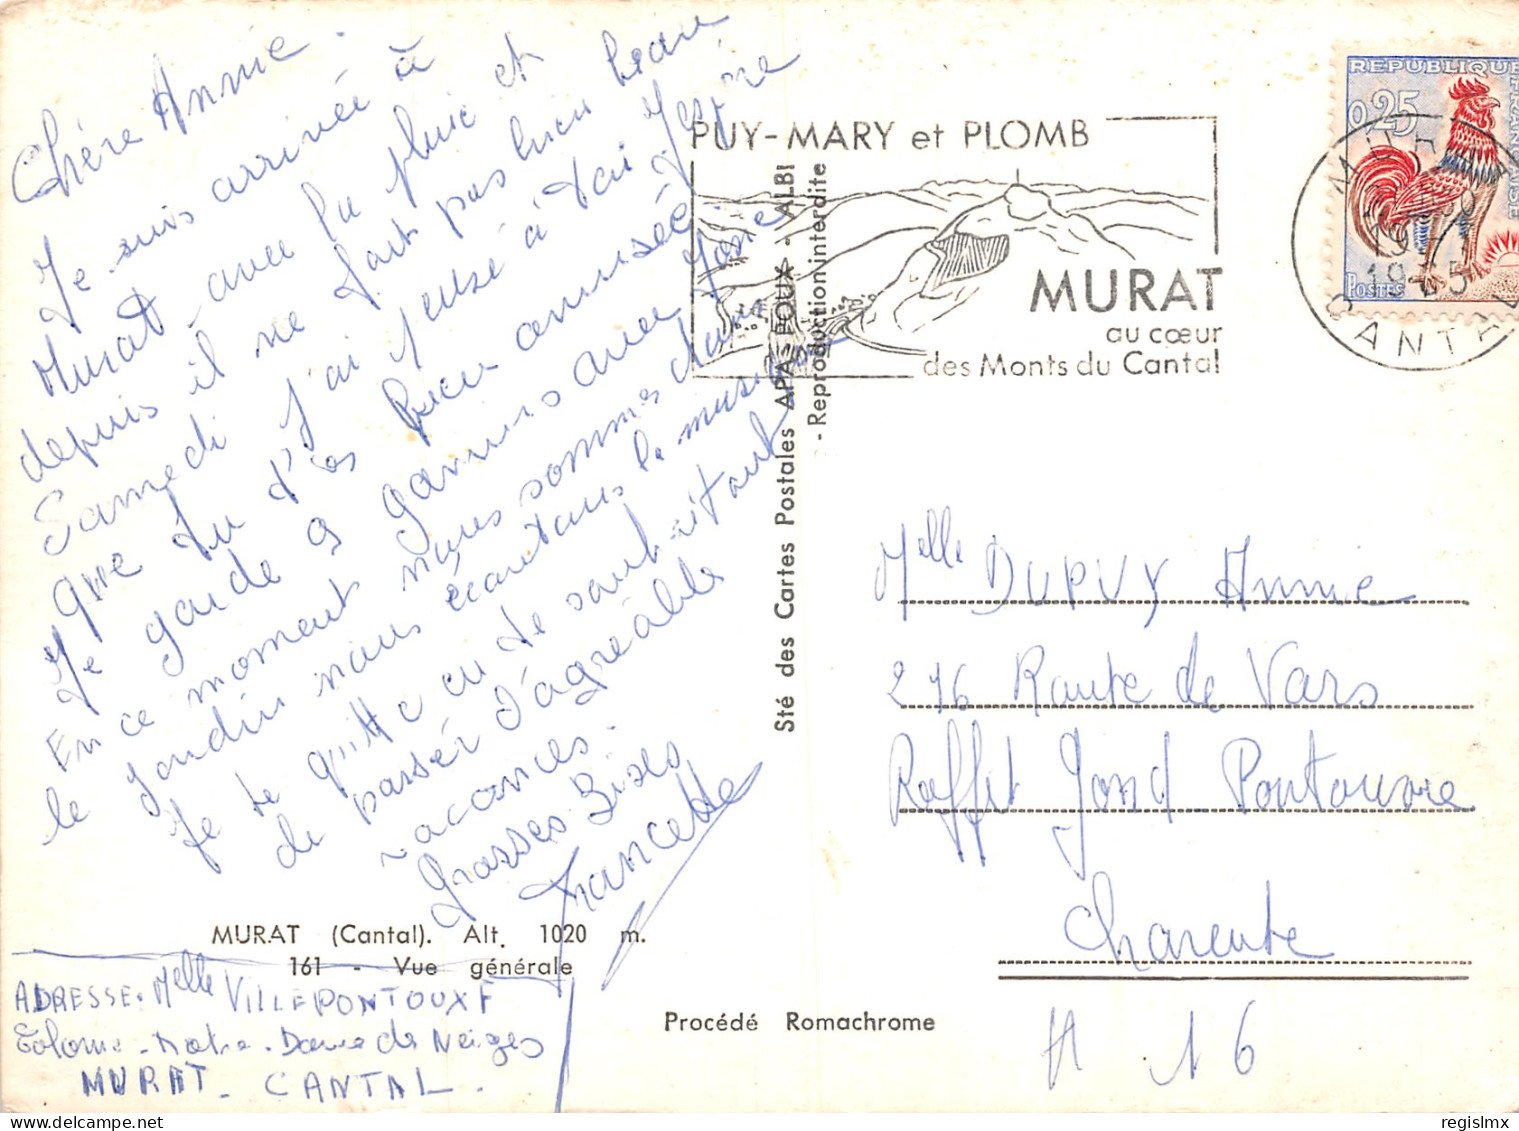 Chère Annie.
Je suis arrivée à
Murat avec la pluie et
depuis il ne fait pas bien beau
Samedi j'ai pensé à toi j'espère
que tu t'es bien amusée
Je garde 9 gamins avec Josie
En ce moment nous sommes dans
le jardin nous écoutons la musique
Je te quitte en te souhaitant
de passer d'agréable
vacances.
Grosses Bises
Francette
MURAT (Cantal). Alt. 1020 m.
161 - Vue générale
ADRESSE. Melle VILLEPONTOUX F
Colonie - Notre - Dame des Neiges
MURAT - CANTAL.
Procédé Romachrome
Sté des Cartes Postales APA-POUX - ALBI
- Reproduction interdite
PUY-MARY et PLOMB
MURAT
au cœur
des Monts du Cantal
MURAT
19
1965
CANTAL
REPUBLIQUE FRANÇAISE
0,25
POSTES
Melle DUPUY Annie
276 Route de Vars
Roffit Gond Pontouvre
Charente
A 16
regislmx